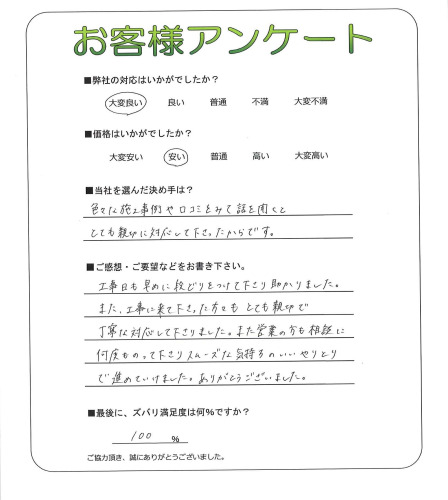 お客様アンケート
■弊社の対応はいかがでしたか？
大変良い　良い　普通　不満　大変不満
■価格はいかがでしたか？
大変安い　安い　普通　高い　大変高い
■当社を選んだ決め手は？
色々な施工事例や口コミをみて話を聞くと
とても親切に対応して下さったからです。
■ご感想・ご要望などをお書き下さい。
工事日も早めに段どりをつけて下さり助かりました。
また、工事に来て下さった方々も とても親切で
丁寧な対応して下さりました。また営業の方も相談に
何度ものって下さりスムーズな気持ちのいいやりとり
で進めていけました。ありがとうございました。
■最後に、ズバリ満足度は何%ですか？
100 %
ご協力頂き、誠にありがとうございました。